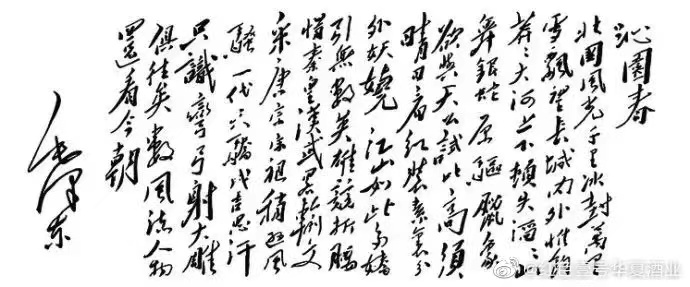 沁園春
北國風光千里冰封萬里
雪飄望長城內外惟餘
莽々大河上下頓失滔々山
舞銀蛇原驅臘象
欲與天公試比高須
晴日看紅裝素裹分
外妖嬈江山如此多嬌
引無數英雄競折腰
惜秦皇漢武略輸文
采唐宗宋祖稍遜風
騷一代天驕成吉思汗
只識彎弓射大雕
俱往矣數風流人物
還看今朝
毛澤東
华夏酒业